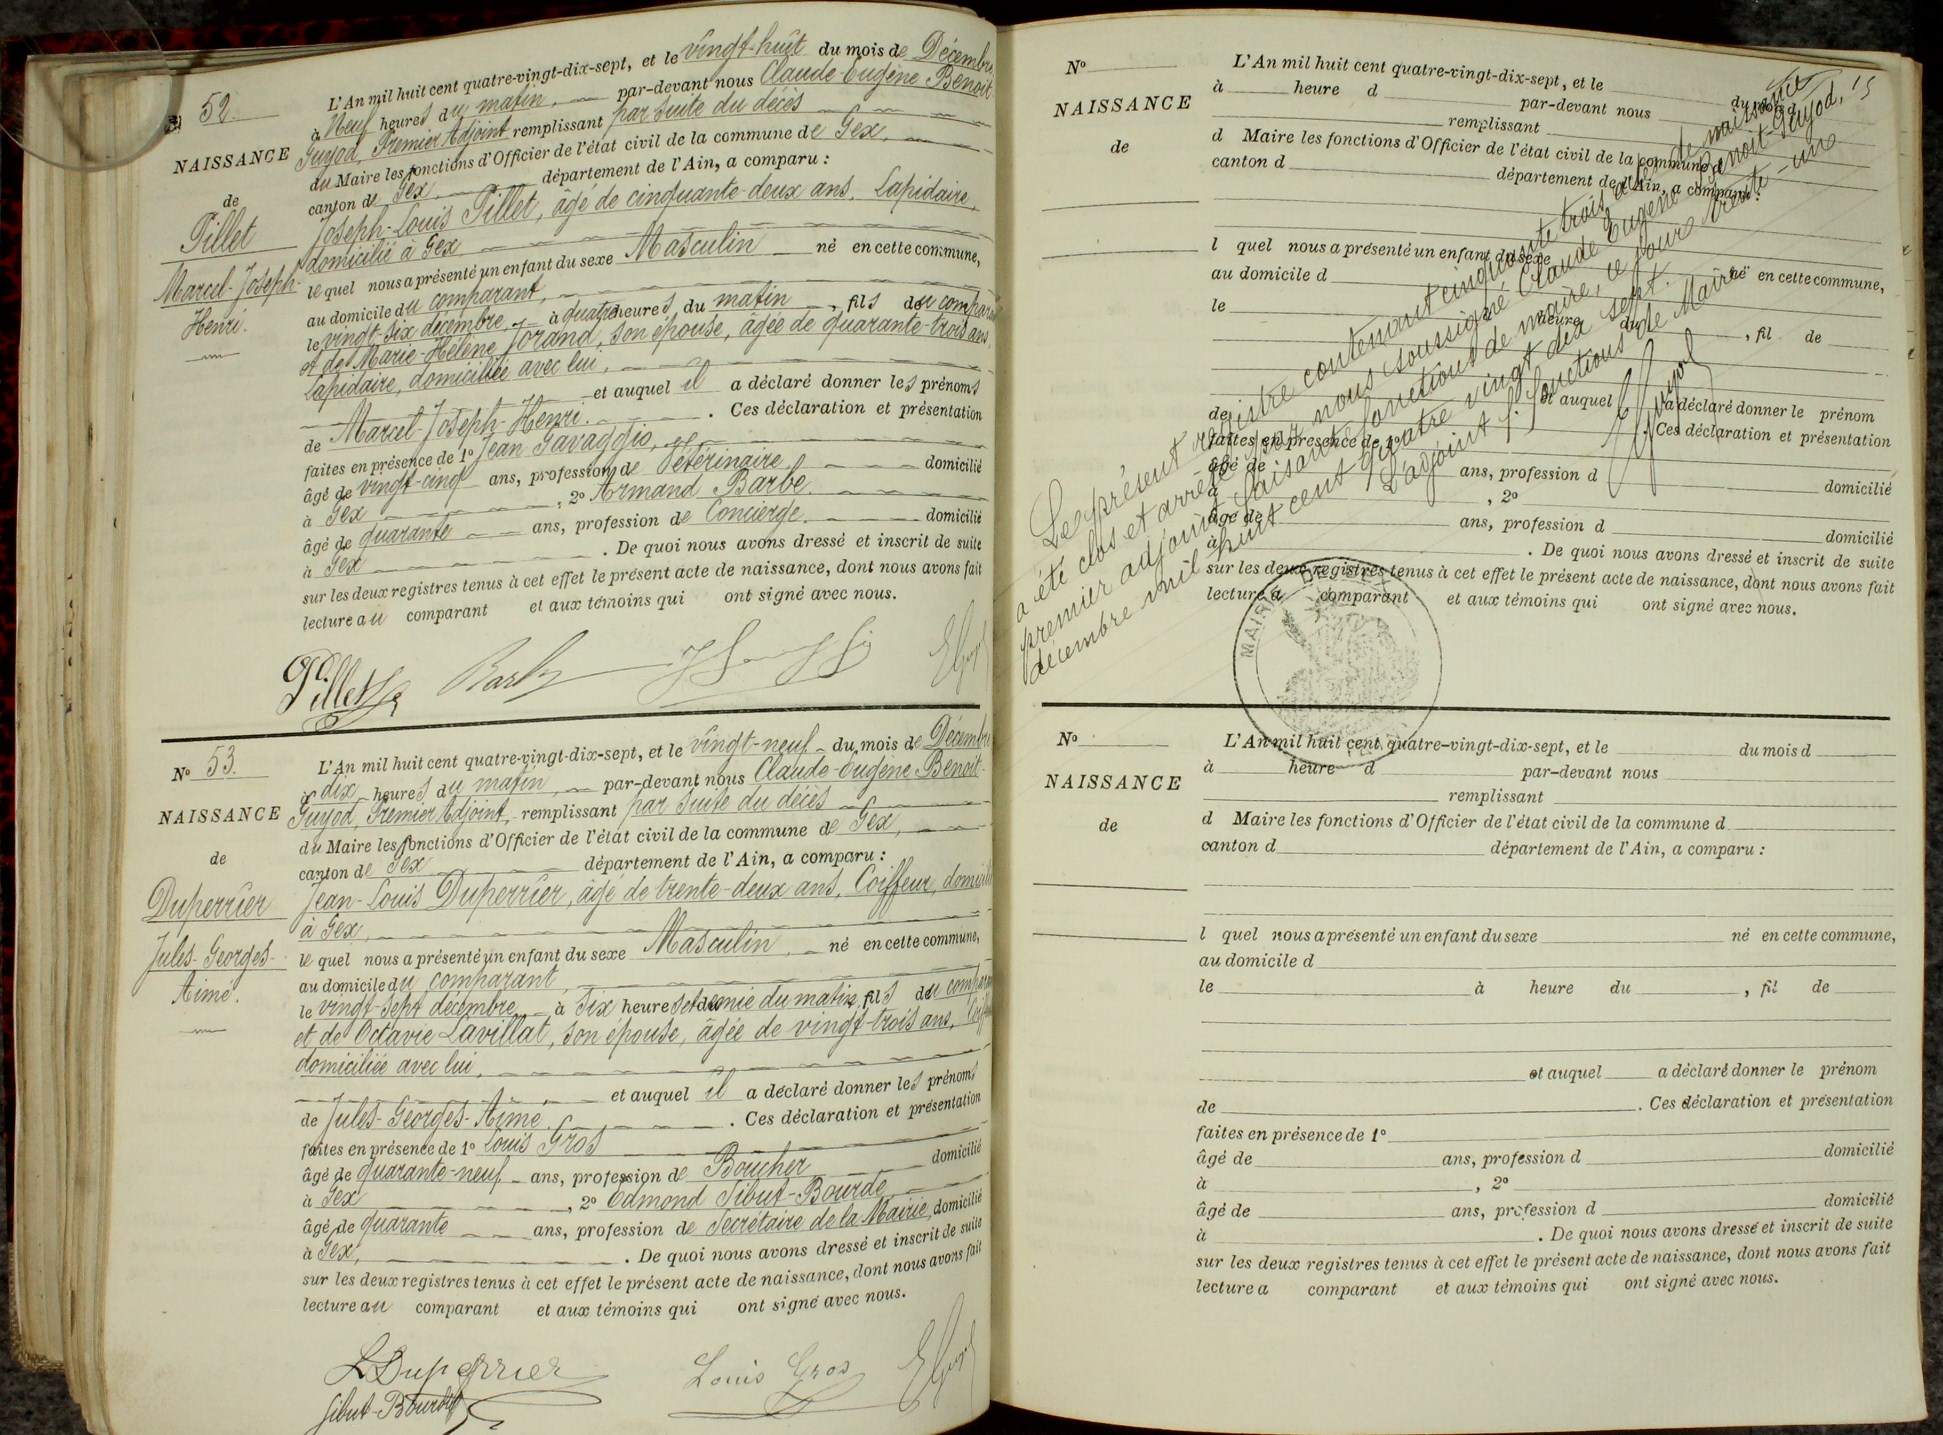 N° 52
NAISSANCE
de
Pillet
Marcel-Joseph-
Henri.
L'An mil huit cent quatre-vingt-dix-sept, et le vingt-huit du mois de Décembre
à Neuf heures du matin, par-devant nous Claude-Eugène Benoit-
Guyod, Premier Adjoint remplissant par suite du décès
du Maire les fonctions d'Officier de l'état civil de la commune de Gex,
canton de Gex, département de l'Ain, a comparu :
Joseph-Louis Pillet, âgé de cinquante-deux ans, Lapidaire,
domicilié à Gex
lequel nous a présenté un enfant du sexe Masculin né en cette commune,
au domicile du comparant,
le vingt-six décembre, à quatre heures du matin, fils du comparant
et de Marie-Hélène Jorand, son épouse, âgée de quarante-trois ans,
lapidaire, domiciliée avec lui,
et auquel il a déclaré donner les prénoms
de Marcel-Joseph-Henri. Ces déclaration et présentation
faites en présence de 1° Jean Javaggio,
âgé de vingt-cinq ans, profession de Vétérinaire domicilié
à Gex, 2° Armand Barbe
âgé de quarante ans, profession de Concierge domicilié
à Gex. De quoi nous avons dressé et inscrit de suite
sur les deux registres tenus à cet effet le présent acte de naissance, dont nous avons fait
lecture au comparant et aux témoins qui ont signé avec nous.
Pillet Barbe
N° 53.
NAISSANCE
de
Duperrier
Jules-Georges-
Aimé.
L'An mil huit cent quatre-vingt-dix-sept, et le vingt-neuf du mois de Décembre
à dix heures du matin, par-devant nous Claude-Eugène Benoit-
Guyod, Premier Adjoint, remplissant par suite du décès
du Maire les fonctions d'Officier de l'état civil de la commune de Gex,
canton de Gex département de l'Ain, a comparu :
Jean-Louis Duperrier, âgé de trente-deux ans, Coiffeur, domicilié
à Gex,
lequel nous a présenté un enfant du sexe Masculin, né en cette commune,
au domicile du comparant,
le vingt-sept décembre à six heures et demie du matin, fils du comparant
et de Octavie Lavillat, son épouse, âgée de vingt-trois ans,
domiciliée avec lui,
et auquel il a déclaré donner les prénoms
de Jules-Georges-Aimé. Ces déclaration et présentation
faites en présence de 1° Louis Gros
âgé de quarante-neuf ans, profession de Boucher domicilié
à Gex, 2° Edmond Sibut-Bourde
âgé de quarante ans, profession de Secrétaire de la Mairie, domicilié
à Gex, . De quoi nous avons dressé et inscrit de suite
sur les deux registres tenus à cet effet le présent acte de naissance, dont nous avons fait
lecture au comparant et aux témoins qui ont signé avec nous.
L Duperrier Louis Gros
Sibut-Bourde
N°
NAISSANCE
de
L'An mil huit cent quatre-vingt-dix-sept, et le du mois d
à heure d par-devant nous
remplissant
d Maire les fonctions d'Officier de l'état civil de la commune d
canton d département de l'Ain, a comparu :
l quel nous a présenté un enfant du sexe né en cette commune,
au domicile d
le heure du , fil de
et auquel a déclaré donner le prénom
de . Ces déclaration et présentation
faites en présence de 1°
âgé de ans, profession d domicilié
à , 2°
âgé de ans, profession d domicilié
à . De quoi nous avons dressé et inscrit de suite
sur les deux registres tenus à cet effet le présent acte de naissance, dont nous avons fait
lecture a comparant et aux témoins qui ont signé avec nous.
Le présent registre contenant cinquante trois actes de naissance
a été clos et arrêté par nous soussigné Claude Eugène Benoit-Guyod, 1er
premier adjoint faisant fonctions de maire, ce jour trente-un
décembre mil huit cent quatre vingt dix sept.
L'adjoint f. fonctions de Maire
Guyod
MAIRIE DE GEX
N°
NAISSANCE
de
L'An mil huit cent quatre-vingt-dix-sept, et le du mois d
à heure d par-devant nous
remplissant
d Maire les fonctions d'Officier de l'état civil de la commune d
canton d département de l'Ain, a comparu :
l quel nous a présenté un enfant du sexe né en cette commune,
au domicile d
le à heure du , fil de
et auquel a déclaré donner le prénom
de . Ces déclaration et présentation
faites en présence de 1°
âgé de ans, profession d domicilié
à , 2°
âgé de ans, profession d domicilié
à . De quoi nous avons dressé et inscrit de suite
sur les deux registres tenus à cet effet le présent acte de naissance, dont nous avons fait
lecture a comparant et aux témoins qui ont signé avec nous.